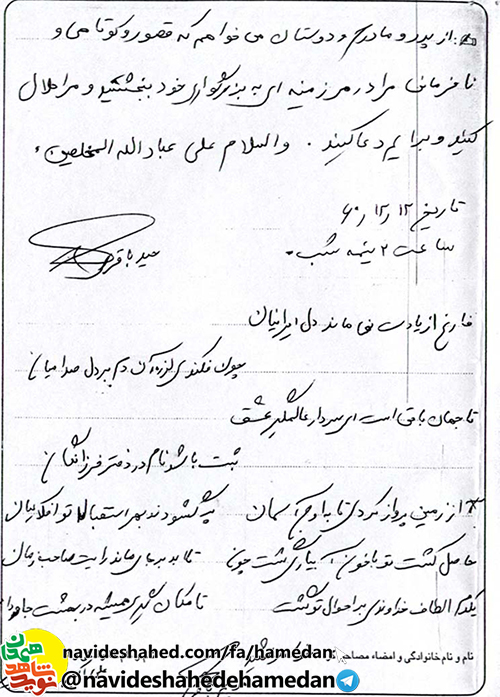 از پدر و مادرم و دوستان می خواهم که قصور و کوتاهی و
نافرمانی مرا در هر زمینه ای به بزرگواری خود ببخشید و مرا حلال
کنید و برایم دعا کنید . والسلام علی عباد الله المخلصین
تاریخ ۱۲ ر ۱۲ ر ۶۰
ساعت ۲ نیمه شب
فارغ از یادت نمی ماند دل ایرانیان
چون فکندی لرزه آن دم بر دل صدامیان
تا جهان باقی است ای سردار عالمگیر عشق
ثبت باشد نام در دفتر فرزانگان
از زمین پرواز کردی تا به اوج آسمان
پر گشودند بهر استقبال تو افلاکیان
حاصل کشت تو با خون آبیاری گشت چون
تا ابد بر جای ماند رایت صاحب زمان
الطاف خداوندی بر احوال تو گشت
تا مکان گیری همیشه در بهشت جاودان
نام و نام خانوادگی و امضاء مصاحبه
navideshahed.com/fa/hamedan
@navideshahedehamedan
نوید شاهد
همدان